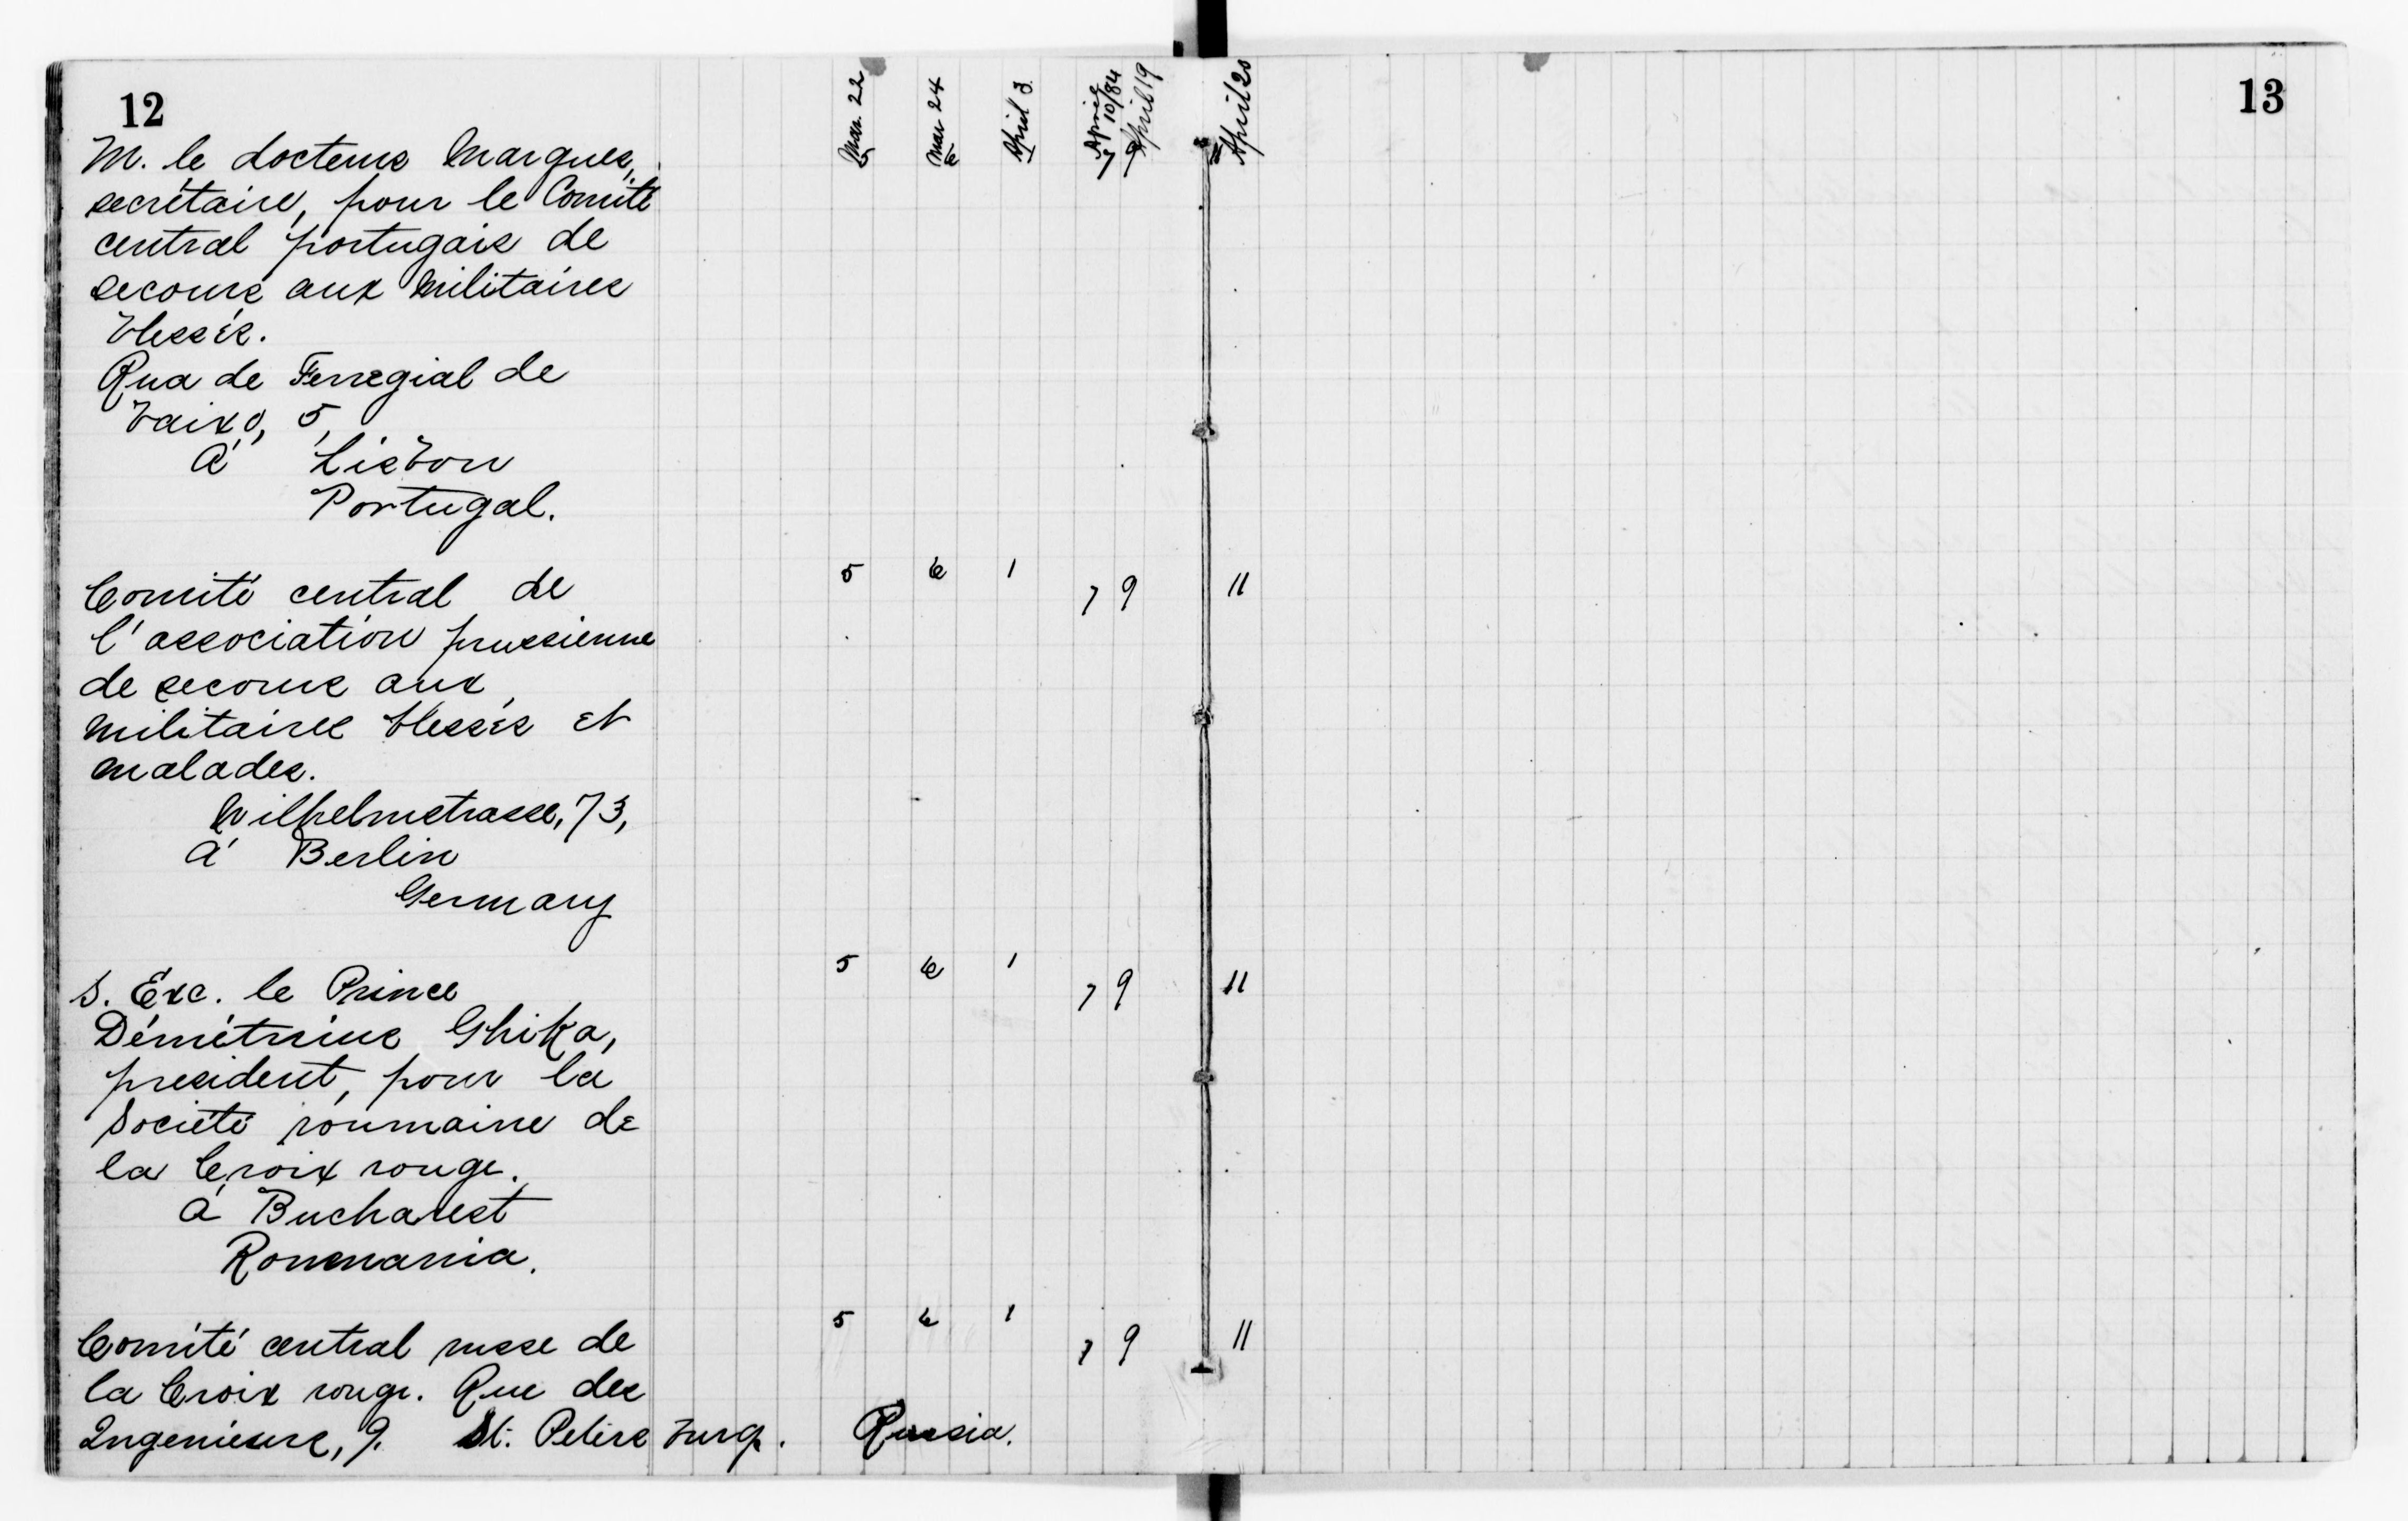 12
13
Mar. 22
Mar 24
April 3.
April 10/84
April 19
April 20
M. le docteur Marques,
secrétaire, pour le Comité
central portugais de
secours aux militaires
blessés.
Rua de Ferregial de
baixo, 5,
à Lisbon
Portugal.
5 6 1 7 9 11
Comité central de
l'association prussienne
de secours aux
militaires blessés et
malades.
Wilhelmstrasse, 73,
à Berlin
Germany
5 6 1 7 9 11
S. Exc. le Prince
Démétrius Ghika,
president, pour la
Société roumaine de
la Croix rouge.
à Bucharest
Roumania.
5 6 1 7 9 11
Comité central russe de
la Croix rouge. Rue des
Ingenieurs, 9. St. Petersburg. Russia.